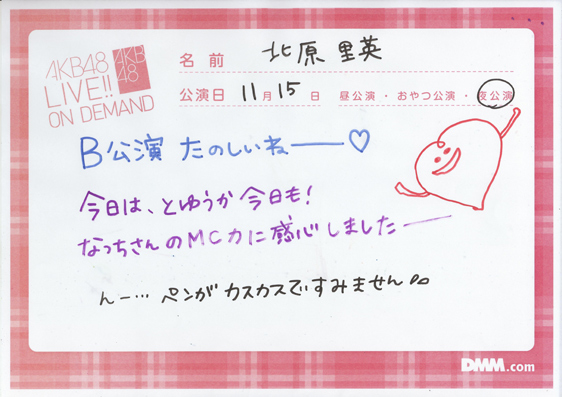 AKB48
LIVE!!
ON DEMAND
AKB
48
名前 北原里英
公演日 11月15日 昼公演・おやつ公演・夜公演
B公演 たのしいねー♡
今日は、とゆうか 今日も!
なっちさんのMC力に感心しましたー
んー… ペンが カスカスですみません
DMM.com